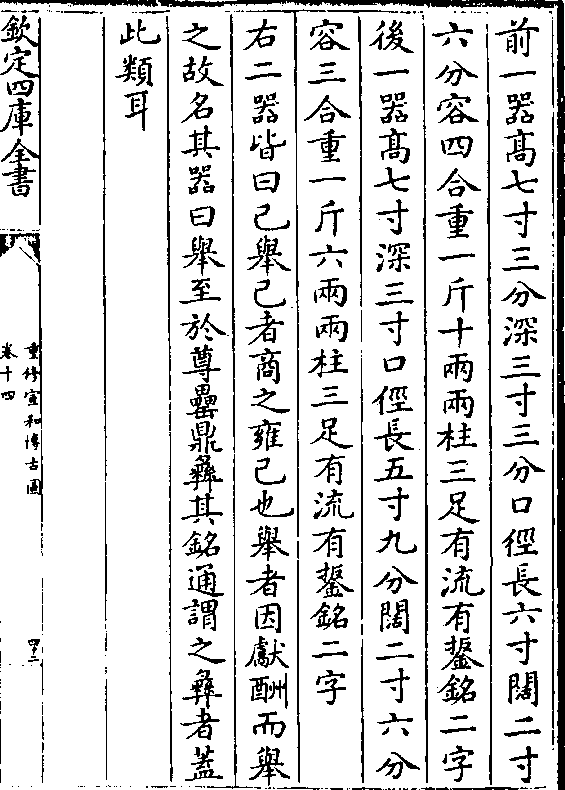 前一器高七寸三分深三寸三分口徑長六寸闊二寸
六分容四合重一斤十兩兩柱三足有流有鋬銘二字
後一器高七寸深三寸口徑長五寸九分闊二寸六分
容三合重一斤六兩兩柱三足有流有鋬銘二字
右二器皆曰己舉己者商之雍己也舉者因獻酬而舉
之故名其器曰舉至於尊罍鼎彝其銘通謂之彝者蓋
此類耳
欽定四庫全書
重修宣和博古圖
卷十四
四十二